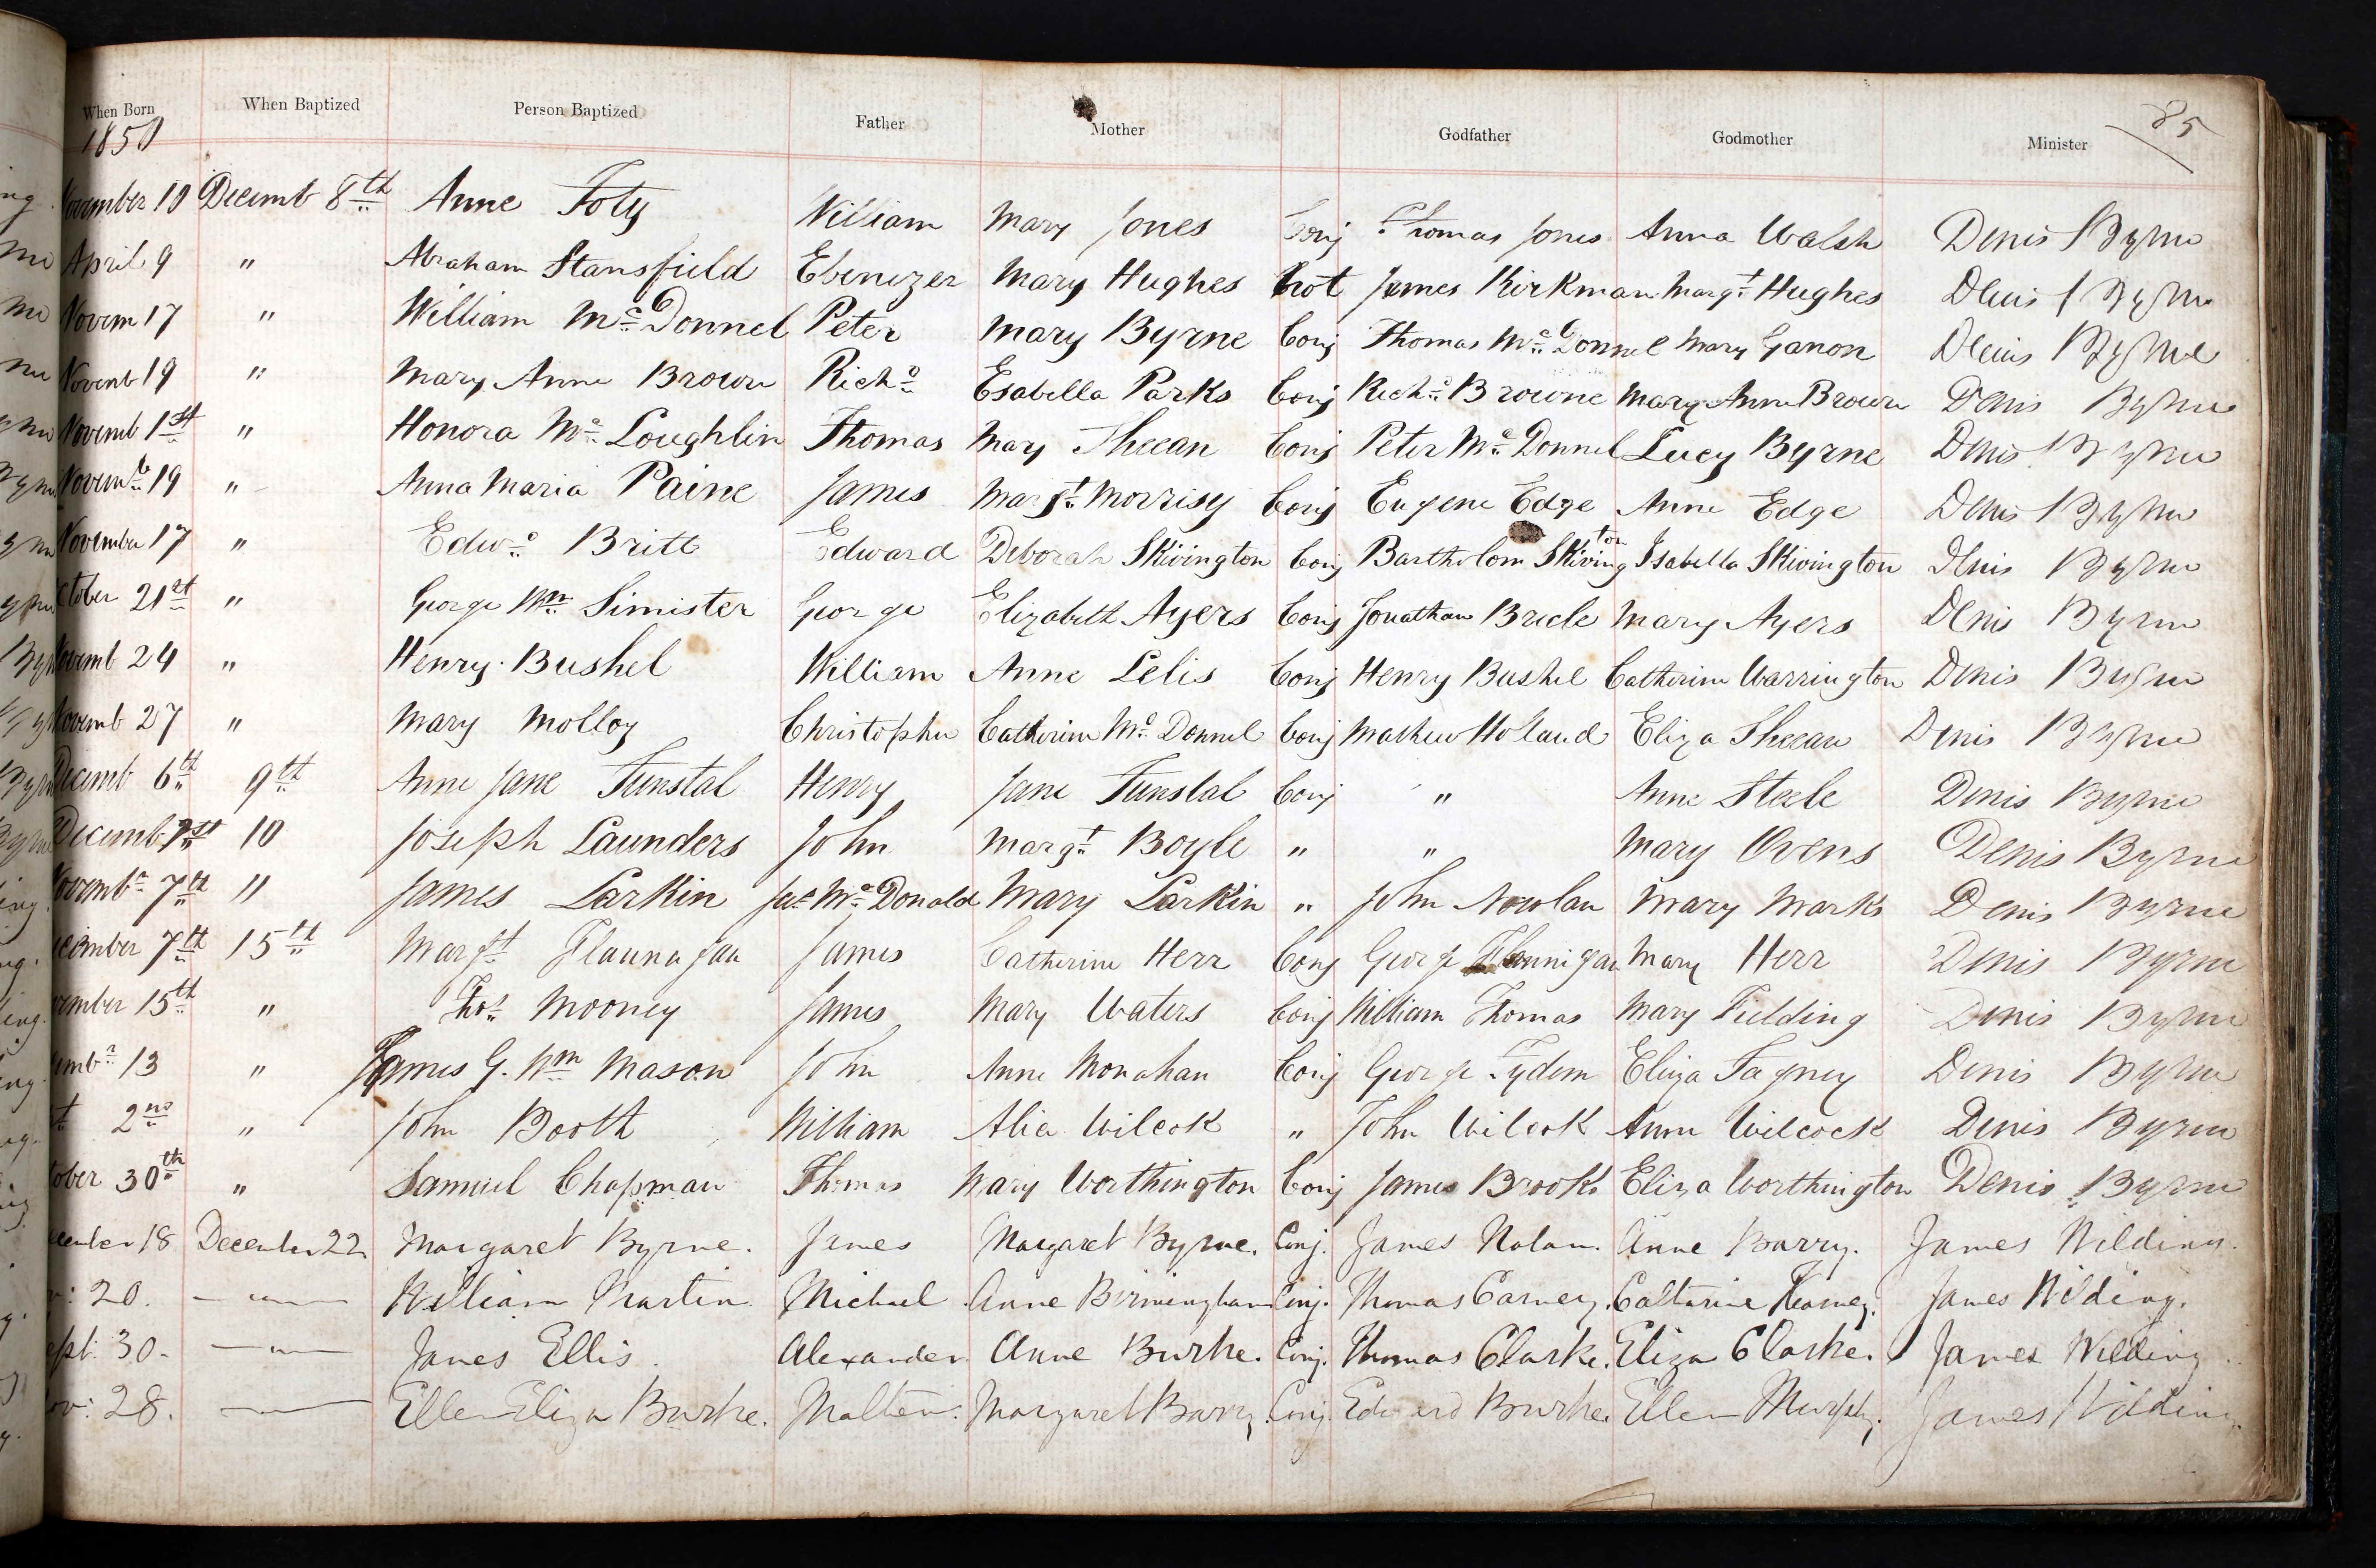 85
When Born When Baptized Person Baptized Father Mother Godfather Godmother Minister
1850
November 10 Decemb 8th Anne Foty William Mary Jones Conj Thomas Jones Anna Walsh Denis Byrne
April 9 " Abraham Stansfield Ebenezer Mary Hughes not James Kirkman Margt Hughes Denis Byrne
Novem 17 " William Mc Donnel Peter Mary Byrne Conj Thomas Mc Donnel Mary Ganon Denis Byrne
Novemb 19 " Mary Anne Brown Richd Esabella Parks Conj Richd Browne Mary Anne Brown Denis Byrne
Novemb 1st " Honora Mc Loughlin Thomas Mary Sheean Conj Peter Mc Donnel Lucy Byrne Denis Byrne
Novemb 19 " Anna Maria Paine James Margt Morrisy Conj Eugene Edge Anne Edge Denis Byrne
November 17 " Edwd Britt Edward Deborah Skivington Conj Bartholom Skivington Isabella Skivington Denis Byrne
October 21st " George Wm Simister George Elizabeth Ayers Conj Jonathan Mary Ayers Denis Byrne
Novemb 24 " Henry Bushel William Anne Lelis Conj Henry Bushel Catherine Warrington Denis Byrne
Novemb 27 " Mary Molloy Christopher Catherine Mc Donnel Conj Mathew Holand Eliza Sheean Denis Byrne
Decemb 6th 9th Anne Jane Tunstal Henry Jane Tunstal Conj " Anne Steele Denis Byrne
Decemb 1st 10 Joseph Launders John Margt Boyle " " Mary Ovens Denis Byrne
Novembr 7th " James Larkin Jas Mc Donald Mary Larkin " John Nowlan Mary Marks Denis Byrne
December 7th 15th Margt Flaunagan James Catherine Herr Conj George Flannigan Mary Herr Denis Byrne
vember 15th " Thos Mooney James Mary Waters Conj William Thomas Mary Fielding Denis Byrne
embr 13 " James G. Wm Mason John Anne Monahan Conj George Tydem Eliza Fagney Denis Byrne
t 2nd " John Booth William Alia Wilcok " John Wilcok Anne Wilcock Denis Byrne
tober 30th " Samuel Chapman Thomas Mary Worthington Conj James Brooks Eliza Worthington Denis Byrne
cember 18 December 22 Margaret Byrne. James Margaret Byrne. Conj. James Nolan. Anne Barry. James Wilding.
v: 20. — " — William Martin Michael Anne Birmingham Conj. Thomas Carney. Catharine Kearney. James Wilding.
ept: 30. — " — James Ellis. Alexander Anne Burke. Conj. Thomas Clarke. Eliza Clarke. James Wilding.
ov: 28. — " — Ellen Eliza Burke. Mathew. Margaret Barry. Conj. Edward Burke. Ellen Murphy. James Wilding.